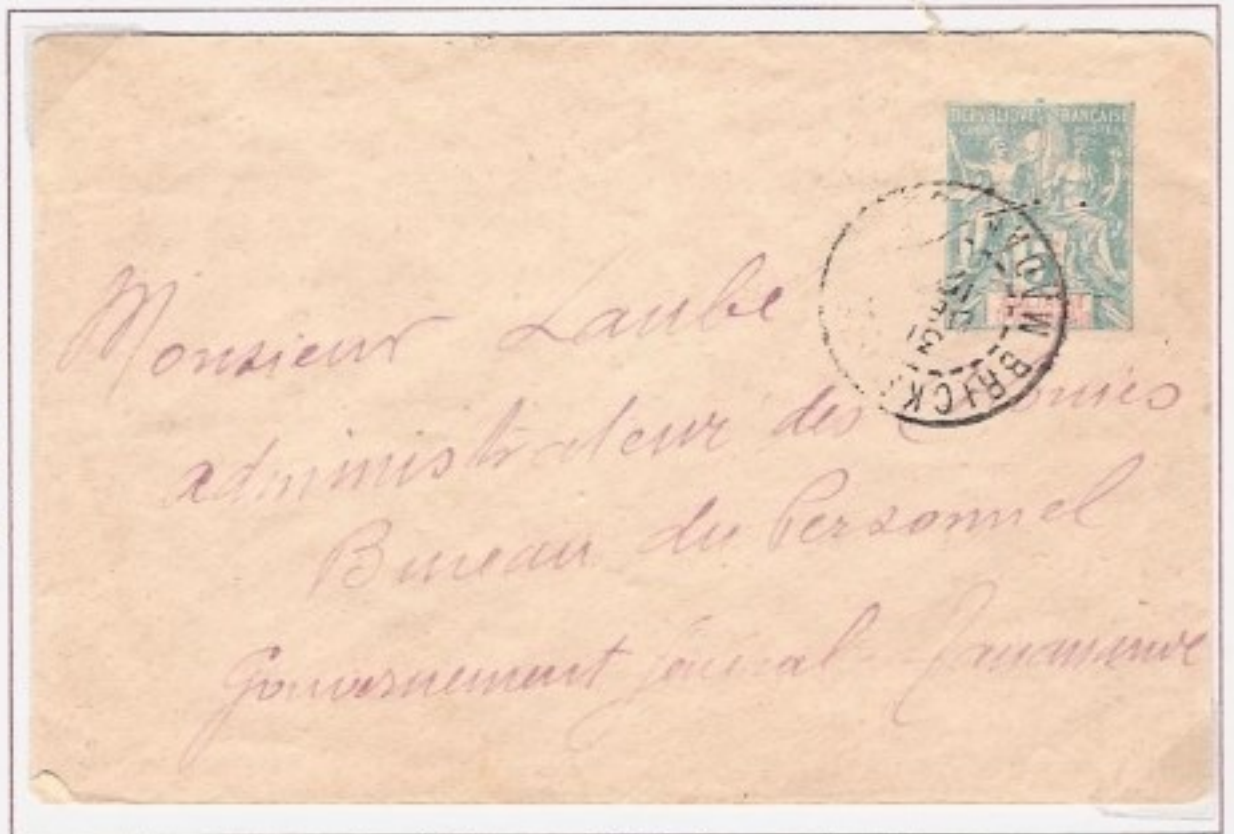 RÉPUBLIQUE FRANÇAISE
COLONIES POSTES
Monsieur Laube
administrateur des Colonies
Bureau du Personnel
Gouvernement Général Tananarive